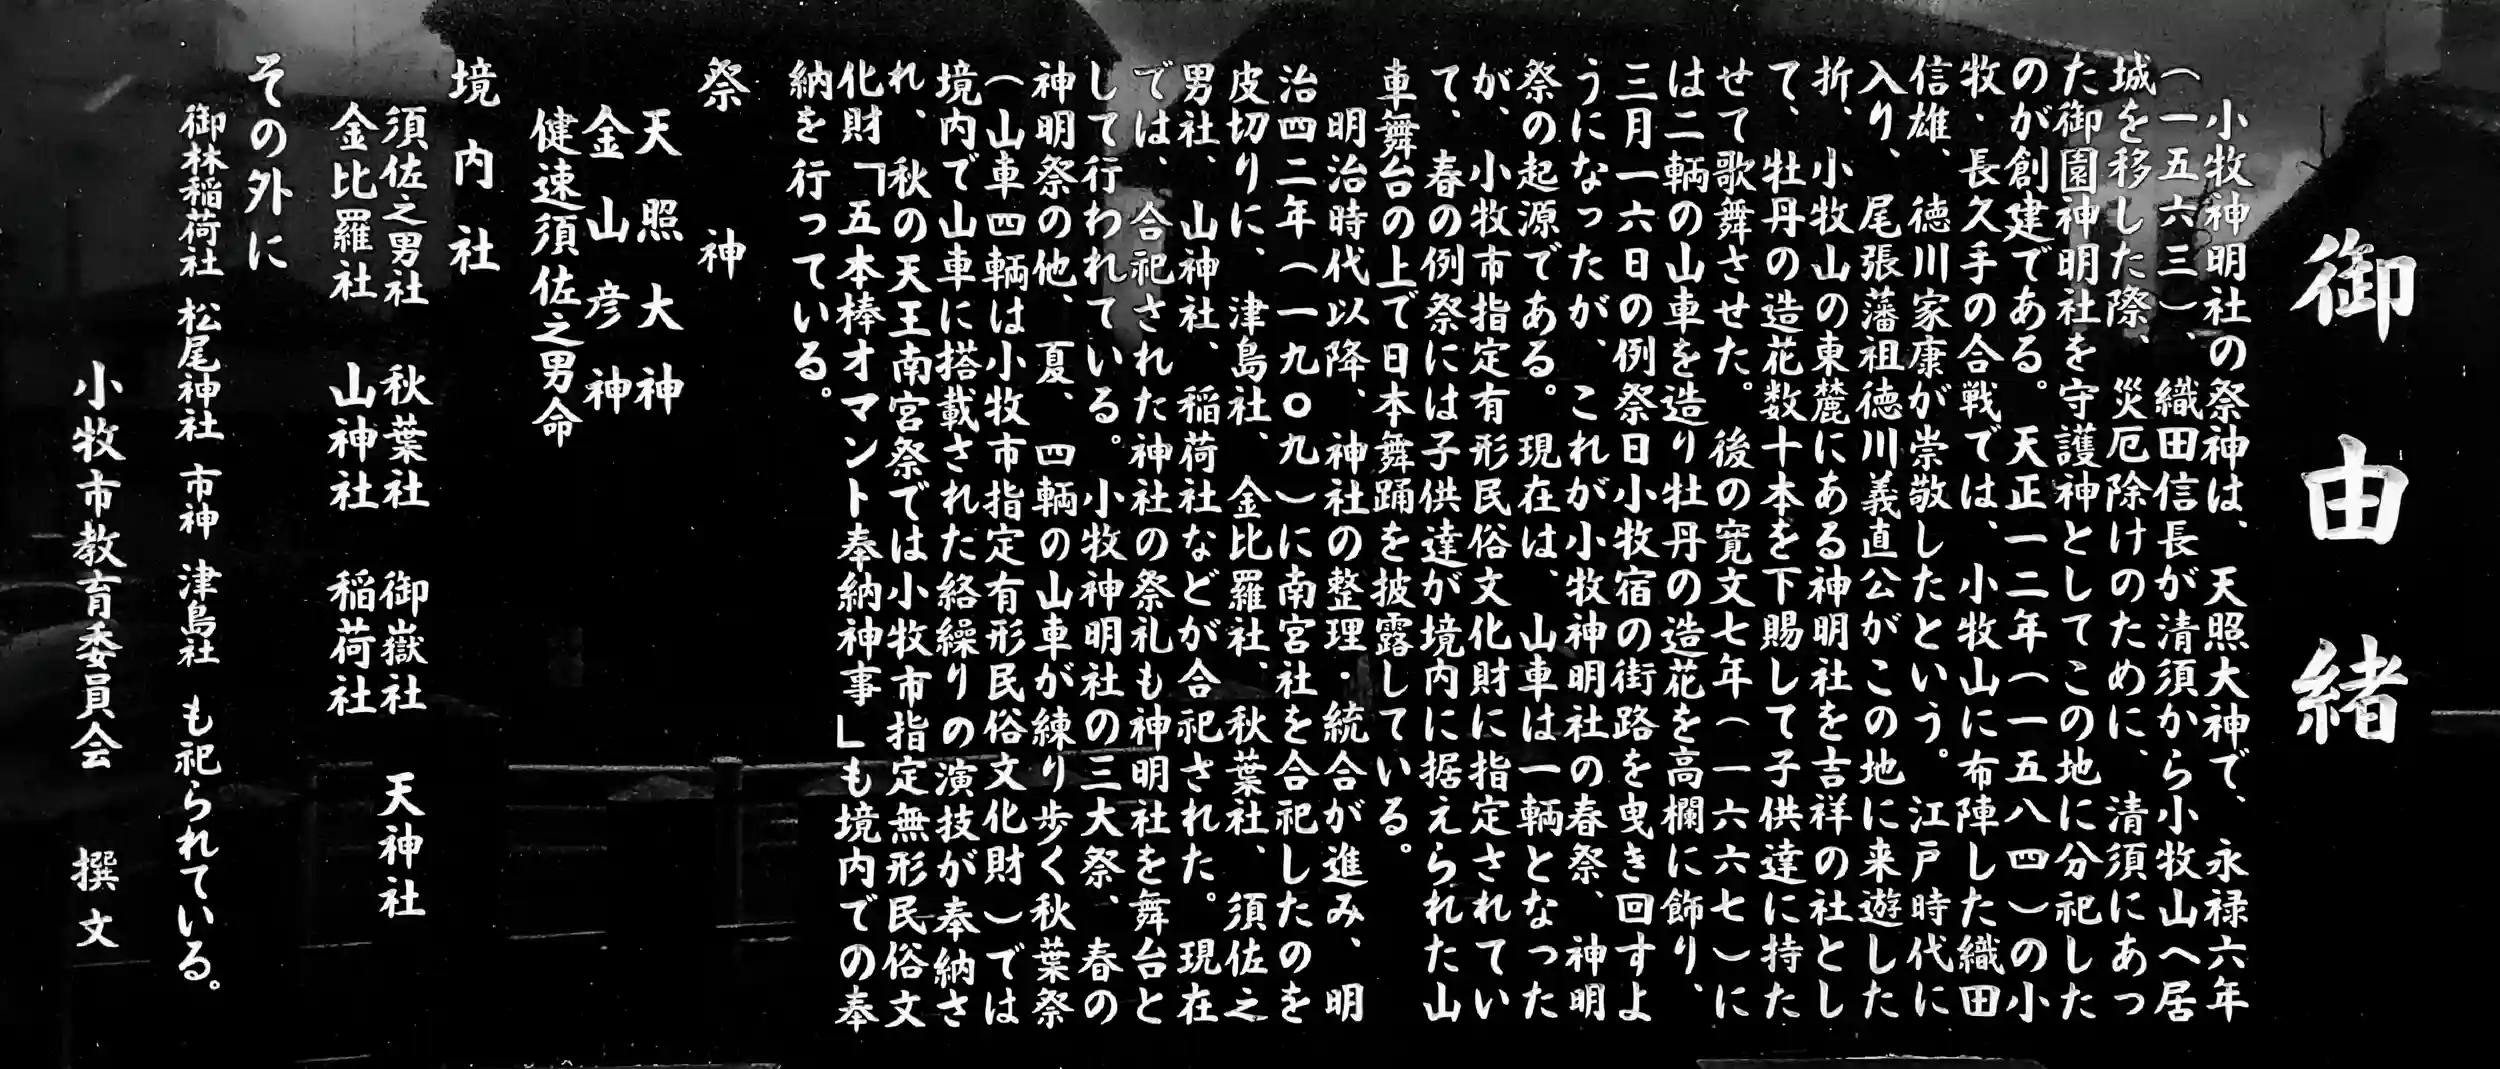 御由緒
小牧神明社の祭神は、天照大神で、永禄六年
（一五六三）、織田信長が清須から小牧山へ居
城を移した際、災厄除けのために、清須にあっ
た御園神明社を守護神としてこの地に分祀した
のが創建である。天正一二年（一五八四）の小
牧・長久手の合戦では、小牧山に布陣した織田
信雄、徳川家康が崇敬したという。江戸時代に
入り、尾張藩祖徳川義直公がこの地に来遊した
折、小牧山の東麓にある神明社を吉祥の社とし
て、牡丹の造花数十本を下賜して子供達に持た
せて歌舞させた。後の寛文七年（一六六七）に
は二輌の山車を造り牡丹の造花を高欄に飾り、
三月一六日の例祭日小牧宿の街路を曳き回すよ
うになったが、これが小牧神明社の春祭、神明
祭の起源である。現在は、山車は一輌となった
が、小牧市指定有形民俗文化財に指定されてい
て、春の例祭には子供達が境内に据えられた山
車舞台の上で日本舞踊を披露している。
明治時代以降、神社の整理・統合が進み、明
治四二年（一九〇九）に南宮社を合祀したのを
皮切りに、津島社、金比羅社、秋葉社、須佐之
男社、山神社、稲荷社などが合祀された。現在
では、合祀された神社の祭礼も神明社を舞台と
して行われている。小牧神明社の三大祭、春の
神明祭の他、夏、四輌の山車が練り歩く秋葉祭
（山車四輌は小牧市指定有形民俗文化財）では
境内で山車に搭載された絡繰りの演技が奉納さ
れ、秋の天王南宮祭では小牧市指定無形民俗文
化財「五本棒オマント奉納神事」も境内での奉
納を行っている。
祭神
天照大神
金山彦神
健速須佐之男命
境内社
須佐之男社 秋葉社 御嶽社 天神社
金比羅社 山神社 稲荷社
その外に
御林稲荷社 松尾神社 市神 津島社 も祀られている。
小牧市教育委員会 撰文